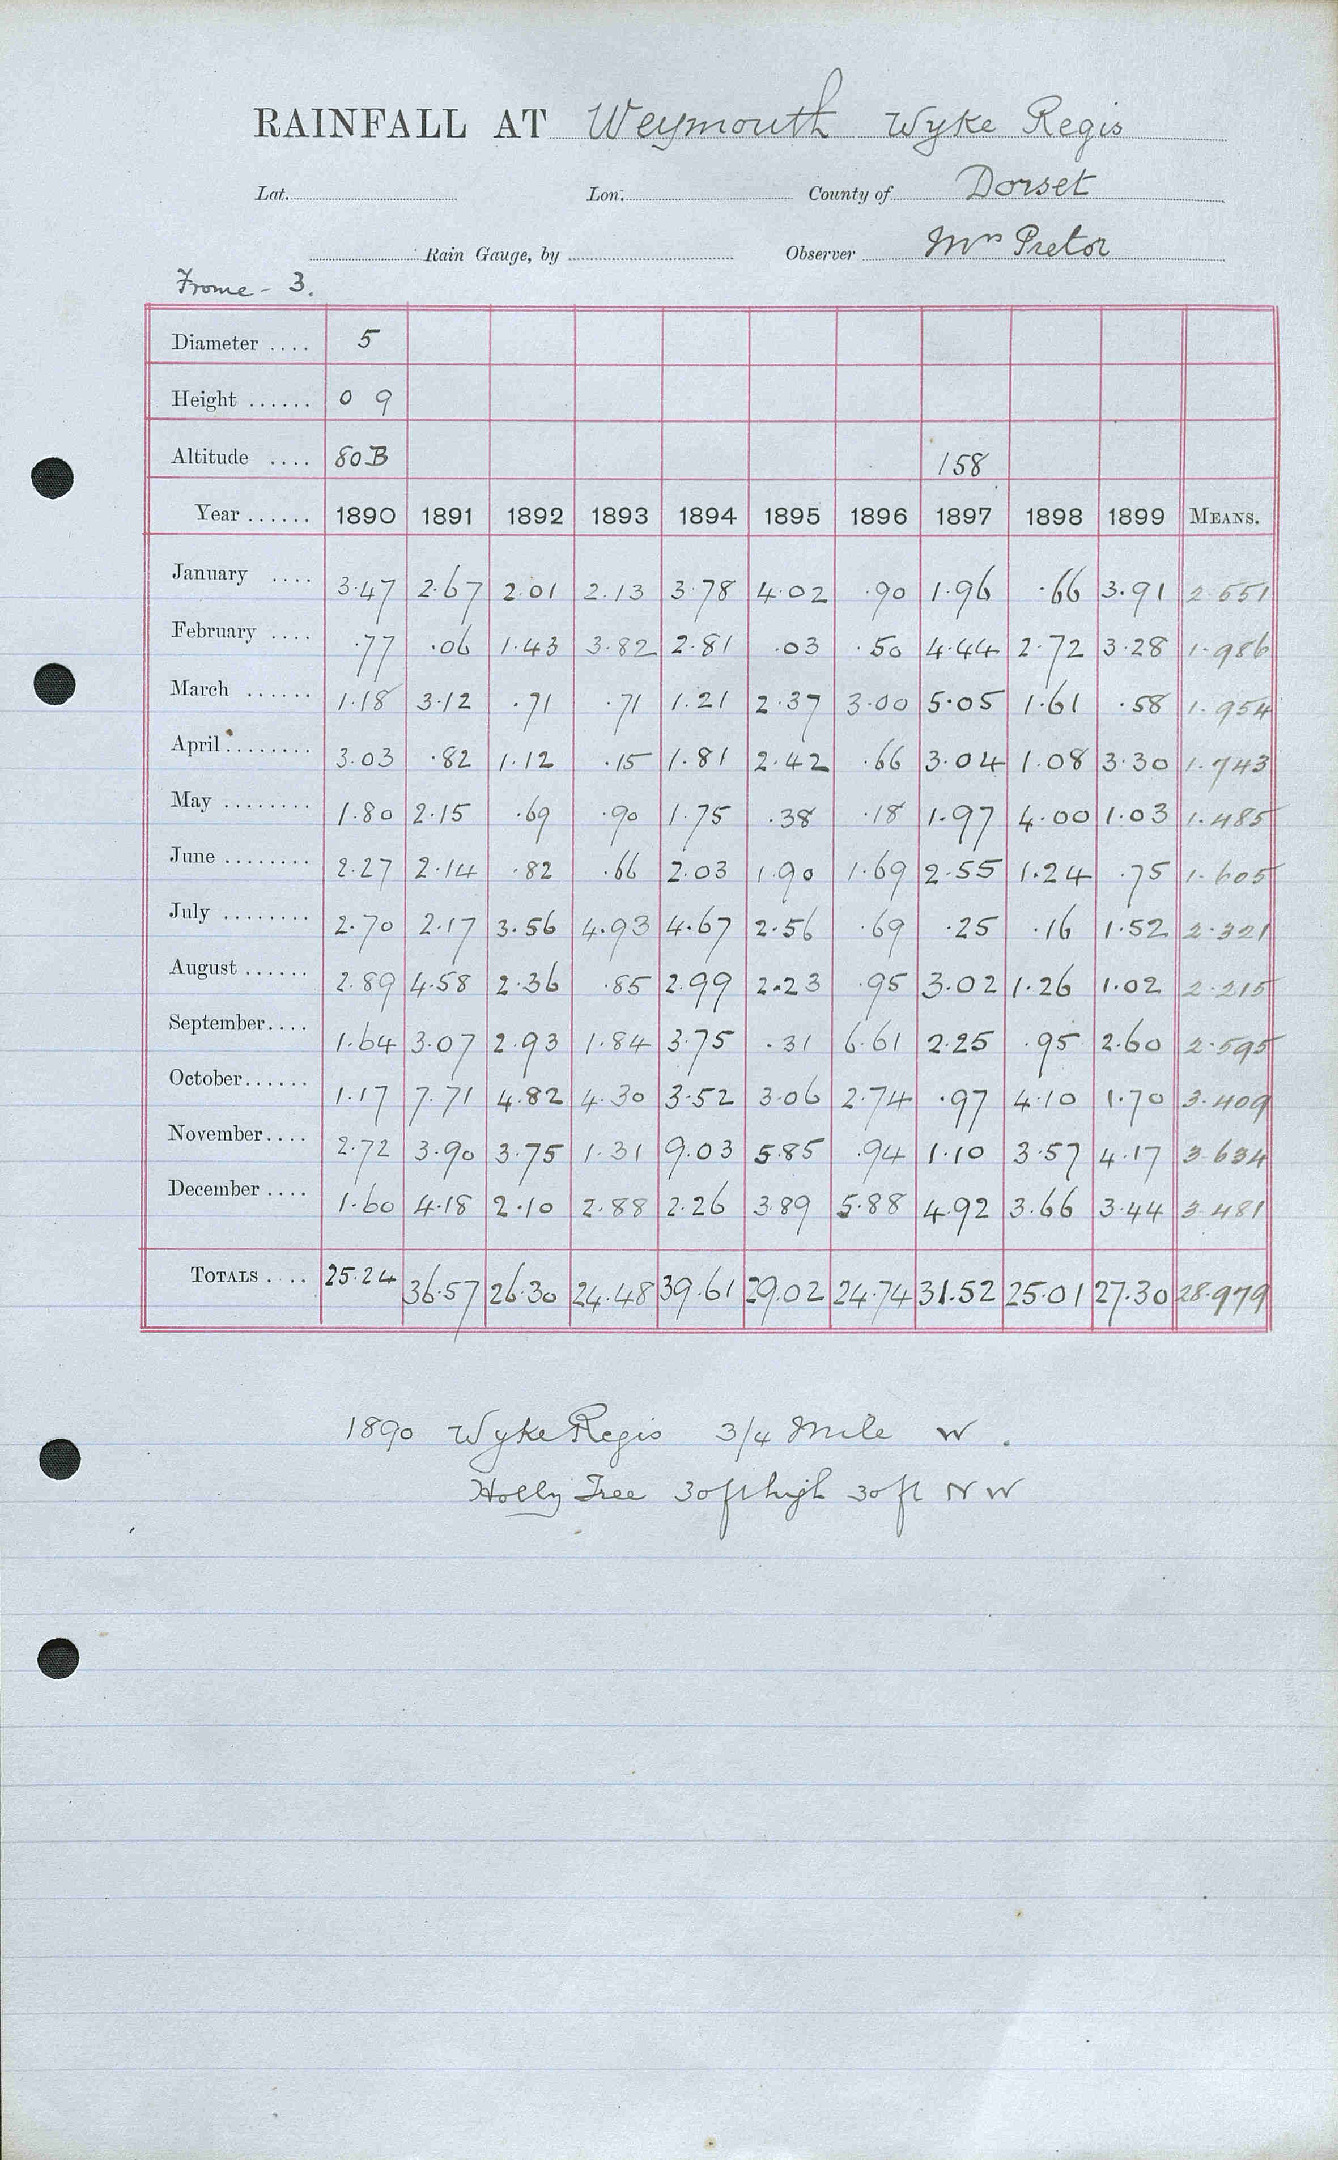 RAINFALL AT Weymouth Wyke Regis
Lat. Lon. County of Dorset
Rain Gauge, by Observer Mrs Pretor
Frome - 3.
Diameter .... 5
Height ...... 0 9
Altitude .... 80B 158
Year ...... 1890 1891 1892 1893 1894 1895 1896 1897 1898 1899 MEANS.
January .... 3.47 2.67 2.01 2.13 3.78 4.02 .90 1.96 .66 3.91 2.551
February .... .77 .06 1.43 3.82 2.81 .03 .50 4.44 2.72 3.28 1.986
March ...... 1.18 3.12 .71 .71 1.21 2.37 3.00 5.05 1.61 .58 1.954
April ........ 3.03 .82 1.12 .15 1.81 2.42 .66 3.04 1.08 3.30 1.743
May ........ 1.80 2.15 .69 .90 1.75 .38 .18 1.97 4.00 1.03 1.485
June ........ 2.27 2.14 .82 .66 2.03 1.90 1.69 2.55 1.24 .75 1.605
July ........ 2.70 2.17 3.56 4.93 4.67 2.56 .69 .25 .16 1.52 2.321
August ...... 2.89 4.58 2.36 .85 2.99 2.23 .95 3.02 1.26 1.02 2.215
September.... 1.64 3.07 2.93 1.84 3.75 .31 6.61 2.25 .95 2.60 2.595
October...... 1.17 7.71 4.82 4.30 3.52 3.06 2.74 .97 4.10 1.70 3.409
November.... 2.72 3.90 3.75 1.31 9.03 5.85 .94 1.10 3.57 4.17 3.634
December .... 1.60 4.18 2.10 2.88 2.26 3.89 5.88 4.92 3.66 3.44 3.481
TOTALS .... 25.24 36.57 26.30 24.48 39.61 29.02 24.74 31.52 25.01 27.30 28.979
1890 Wyke Regis 3/4 Mile W.
Holly Tree 30ft high 30ft NW